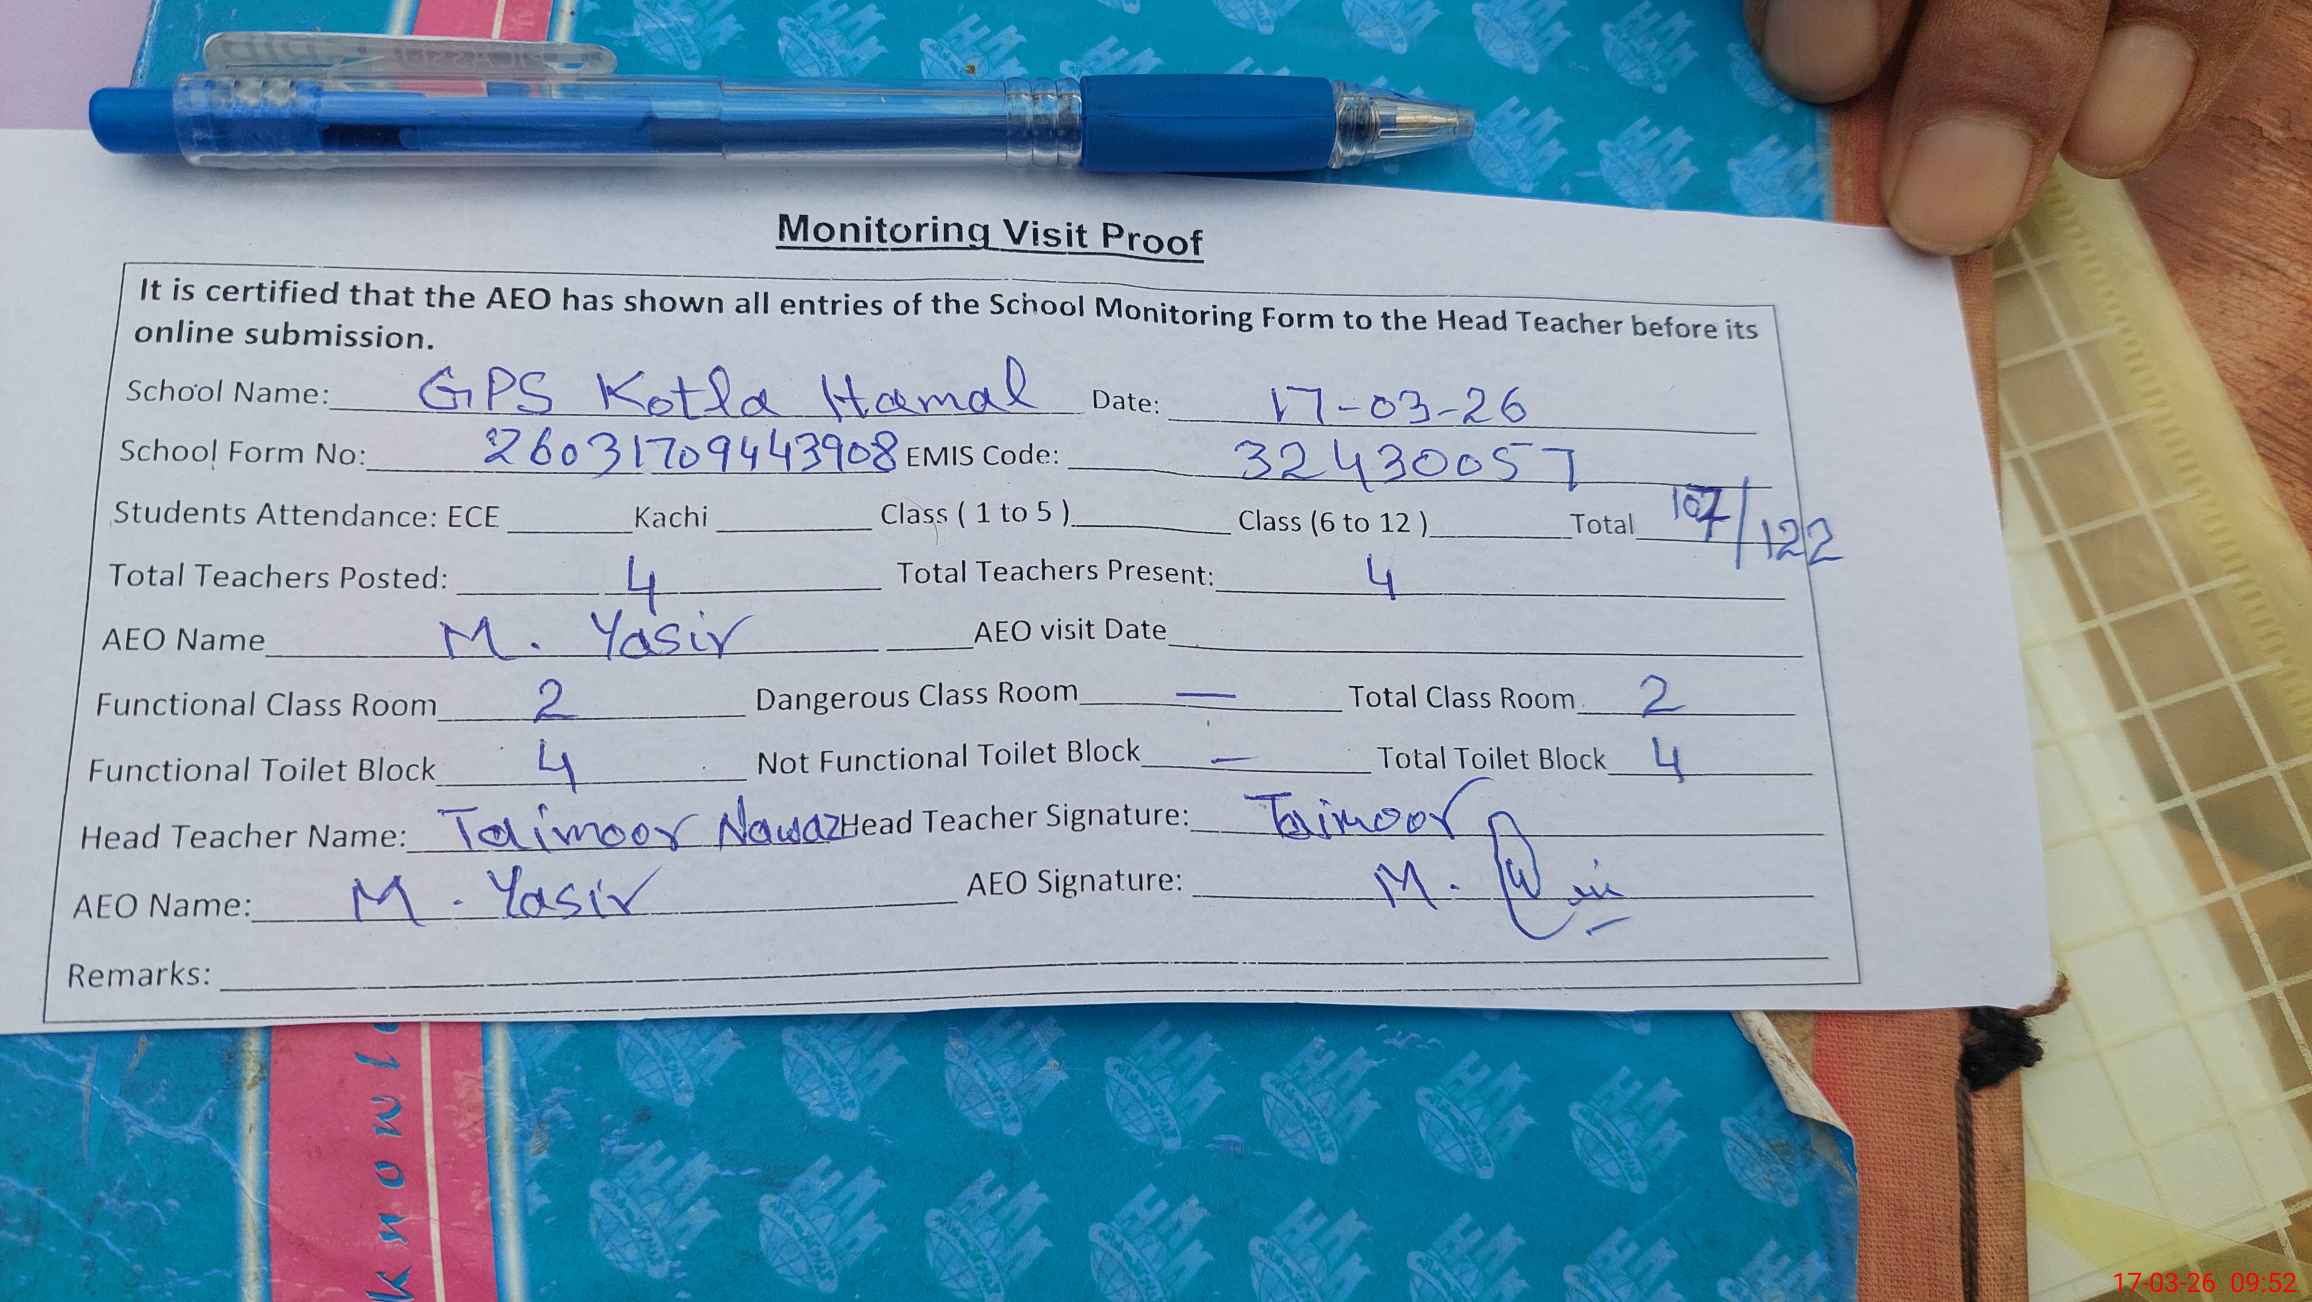 Monitoring Visit Proof
It is certified that the AEO has shown all entries of the School Monitoring Form to the Head Teacher before its
online submission.
School Name: GPS Kotla Hamal Date: 17-03-26
School Form No: 26031709443908 EMIS Code: 32430057
Students Attendance: ECE Kachi Class ( 1 to 5 ) Class (6 to 12 ) Total 107/122
Total Teachers Posted: 4 Total Teachers Present: 4
AEO Name M. Yasir AEO visit Date
Functional Class Room 2 Dangerous Class Room — Total Class Room 2
Functional Toilet Block 4 Not Functional Toilet Block — Total Toilet Block 4
Head Teacher Name: Taimoor Nawaz Head Teacher Signature: Taimoor
AEO Name: M. Yasir AEO Signature: M.
Remarks:
17-03-26 09:52